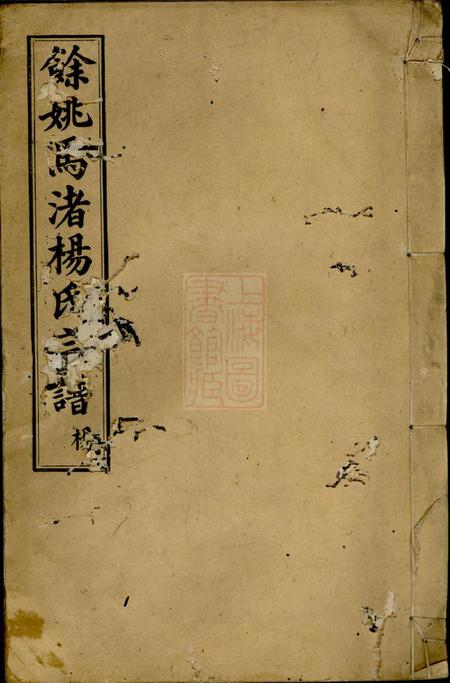 餘姚溈渚楊氏宗譜
楊
上海圖
書館藏